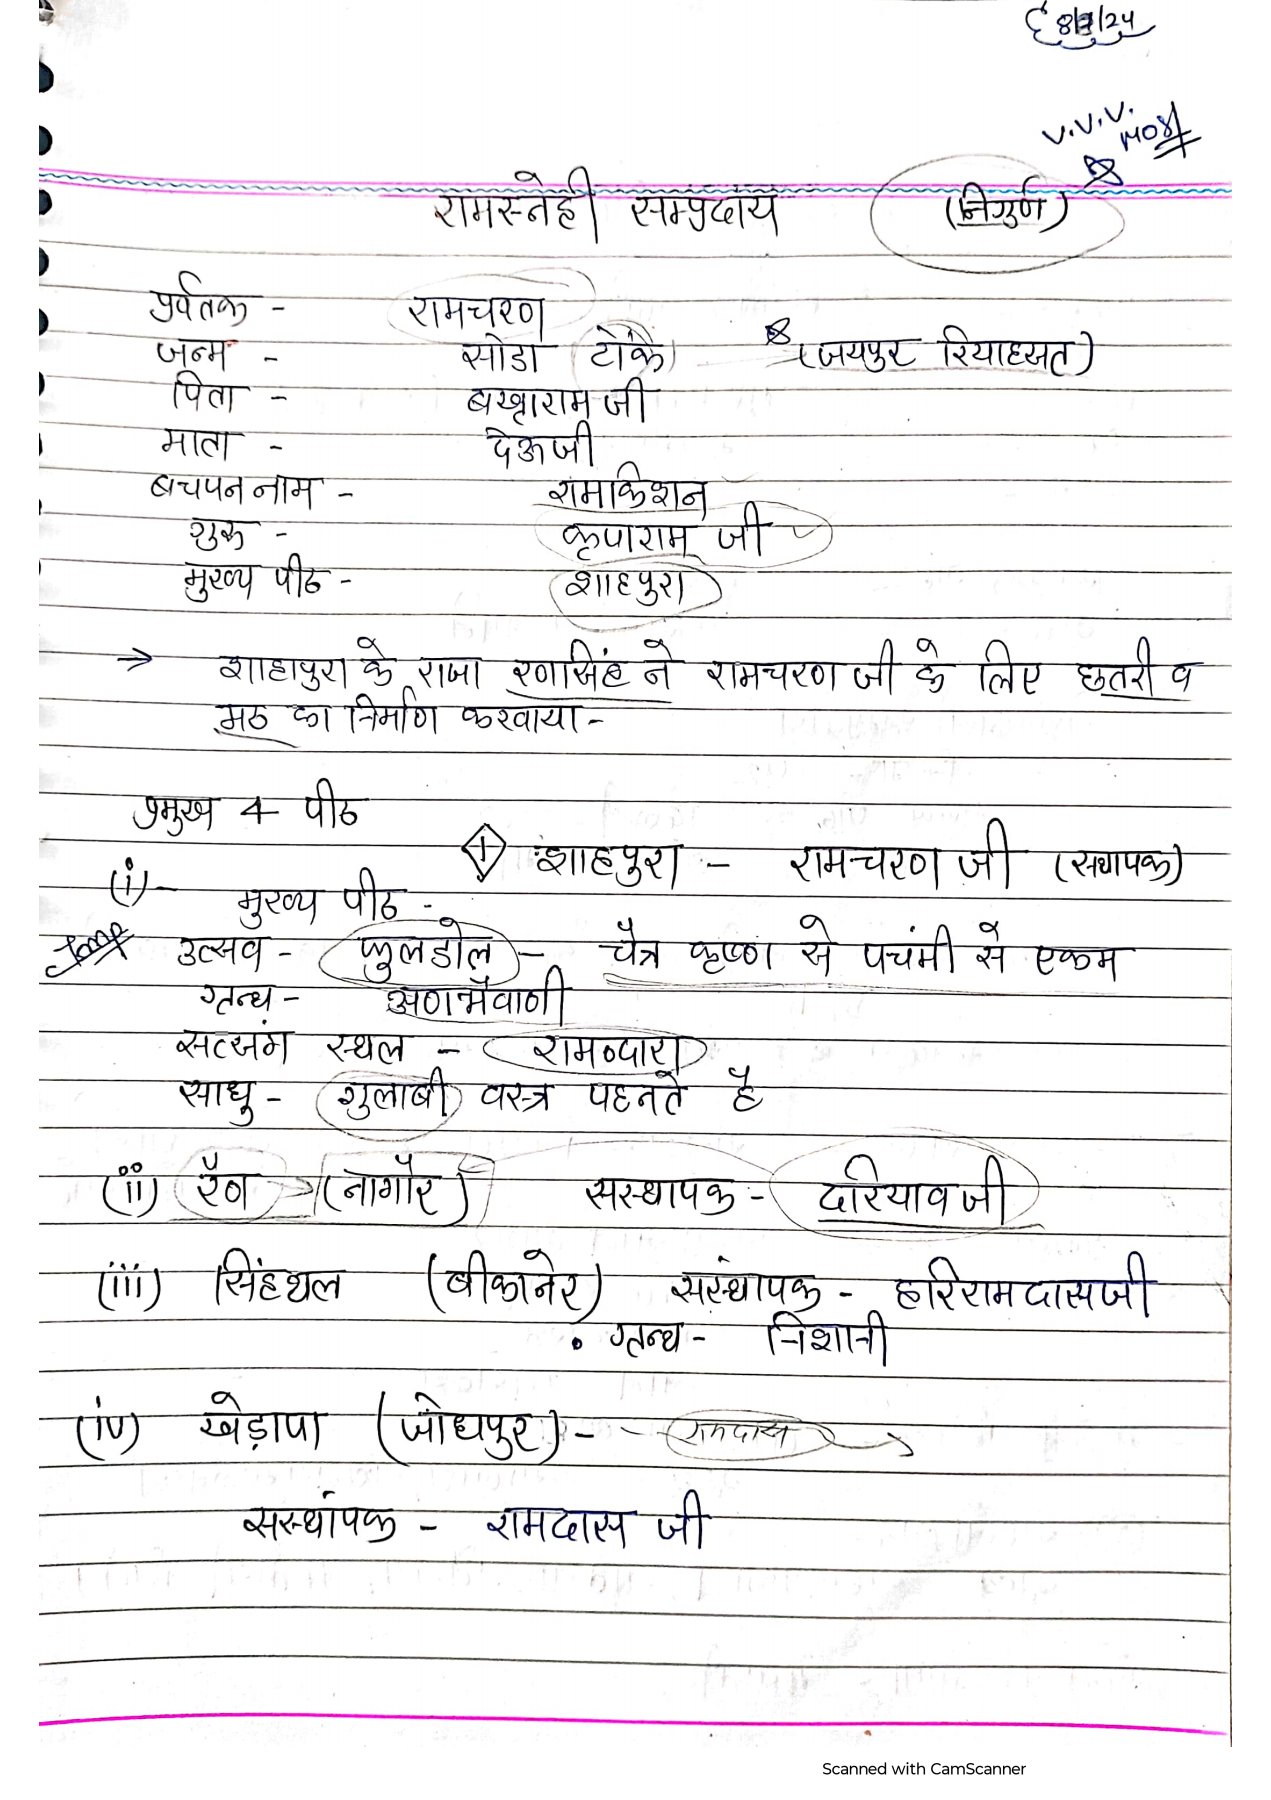 8/7/24
V.V.V.
रामस्नेही सम्प्रदाय (निर्गुण)
प्रर्वतक - रामचरण
जन्म - सोडा (टोंक) (जयपुर रियाहसत)
पिता - बख्तारामजी
माता - देऊजी
बचपन नाम - रामकिशन
गुरू - कृपाराम जी
मुख्य पीठ - शाहपुरा
→ शाहापुरा के राजा रणसिंह ने रामचरण जी के लिए छतरी व
मठ का निर्माण करवाया -
प्रमुख 4 पीठ
1 शाहपुरा - रामचरण जी (स्थापक)
(i) - मुख्य पीठ -
Imp उत्सव - फुलडोल - चैत्र कृष्ण से पचंमी से एकम
ग्रन्थ - अणभैवाणी
सत्संग स्थल - रामद्वारा
साधु - गुलाबी वस्त्र पहनते है
(ii) रैण → (नागौर) सस्थापक - दरियाव जी
(iii) सिंहथल (बीकानेर) संस्थापक - हरिरामदासजी
• ग्रन्थ - निशानी
(iv) खेड़ापा (जोधपुर) - - रामदास →
सस्थांपक - रामदास जी
Scanned with CamScanner